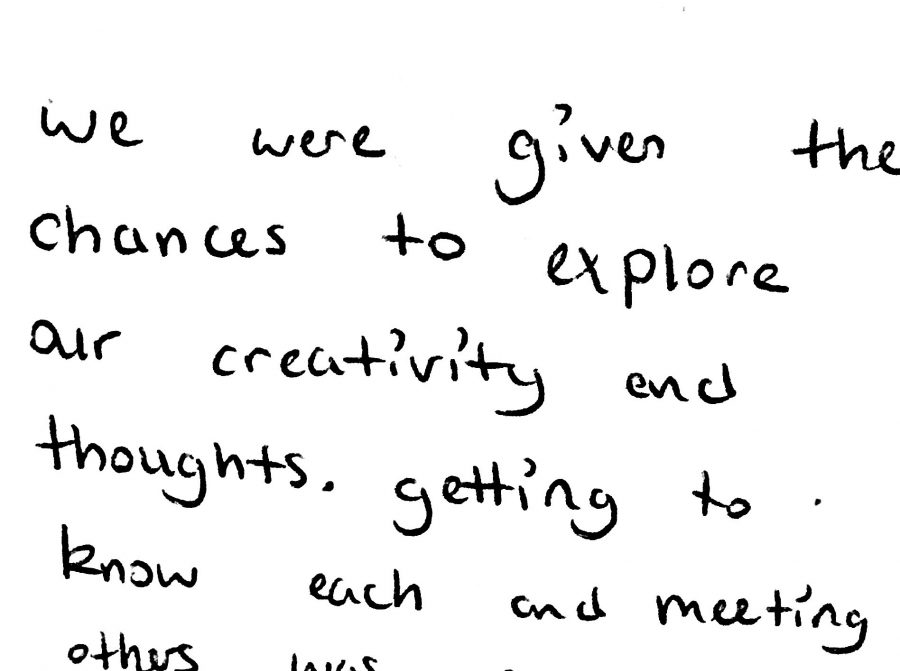 we were given the
chances to explore
our creativity and
thoughts. getting to
know each and meeting
others was